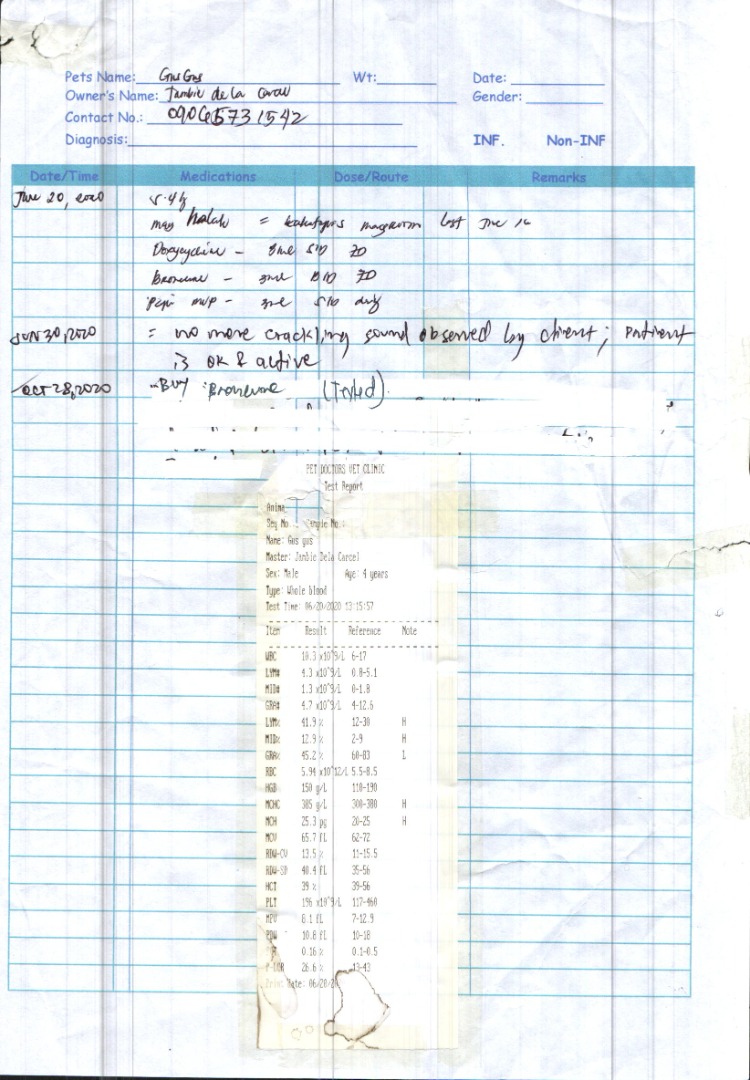 Pets Name: Gus Gus Wt: Date:
Owner's Name: Jambie de la Gender:
Contact No.: 09065731542
Diagnosis: INF. Non-INF
Date/Time Medications Dose/Route Remarks
June 20, 2020
may halak = last June
Doxycycline - SID 7D
- BID 7D
- SID
JUN 30, 2020 = no more crackling sound observed by client; patient
is OK & active
OCT 28, 2020 Buy
PET DOCTORS VET CLINIC
Test Report
Anima
Seq No.: Sample No.:
Name: Gus gus
Master: Janbie Dela Carcel
Sex: Male Age: 4 years
Type: Whole blood
Test Time: 06/20/2020 13:15:57
Item Result Reference Note
WBC 10.3 x10^9/L 6-17
LYM# 4.3 x10^9/L 0.8-5.1
MID# 1.3 x10^9/L 0-1.8
GRA# 4.7 x10^9/L 4-12.6
LYM% 41.9 % 12-30 H
MID% 12.9 % 2-9 H
GRA% 45.2 % 60-83 L
RBC 5.94 x10^12/L 5.5-8.5
HGB 150 g/L 110-190
MCHC 385 g/L 300-380 H
MCH 25.3 pg 20-25 H
MCV 65.7 fL 62-72
RDW-CV 13.5 % 11-15.5
RDW-SD 40.4 fL 35-56
HCT 39 % 39-56
PLT 196 x10^9/L 117-460
MPV 8.1 fL 7-12.9
PDW 10.8 fL 10-18
0.16 % 0.1-0.5
P-LCR 26.6 % 13-43
Print Date: 06/20/2